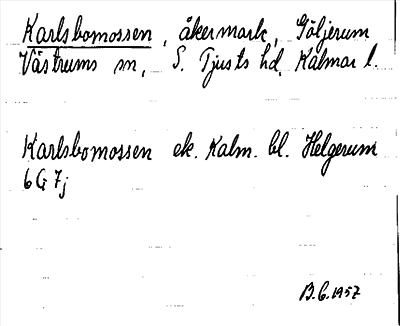 Karlsbomossen, åkermark, Göljerum
Västrums sn, S. Tjusts hd, Kalmar l.
Karlsbomossen ek. Kalm. bl. Helgerum
6G7j
B.G. 1957